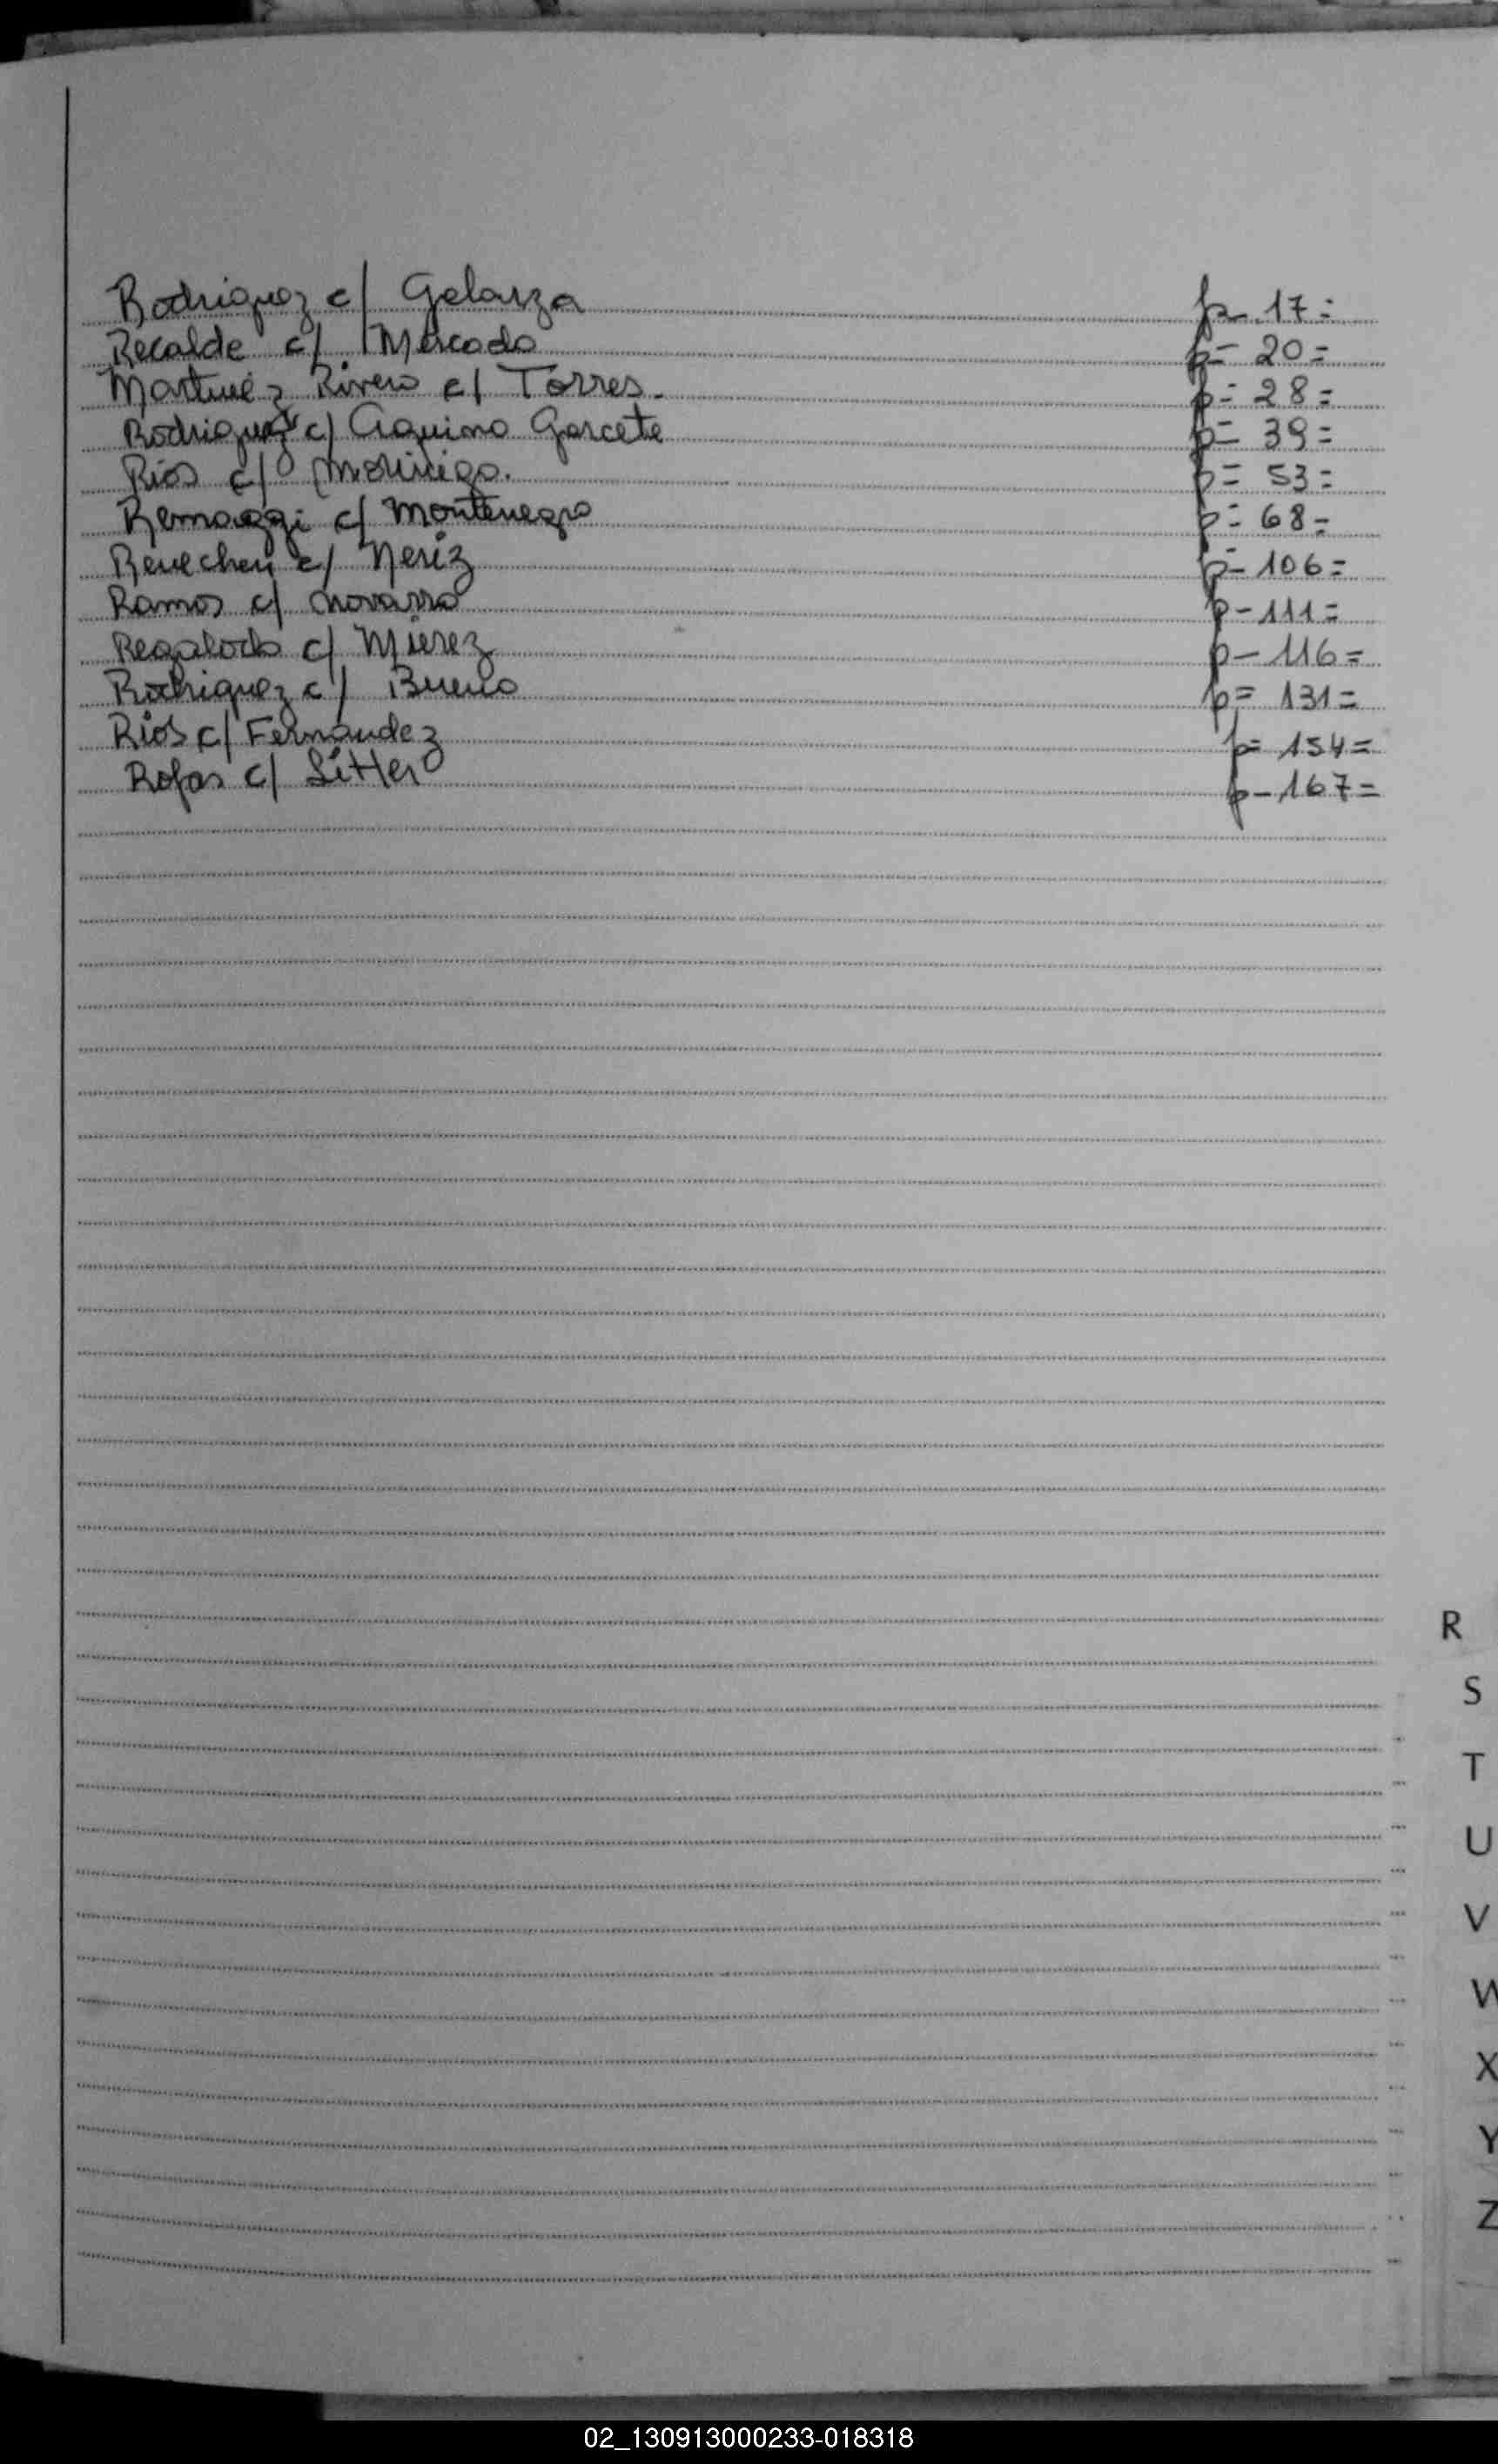 Rodriguez c/ Gelarza p- 17=
Recalde c/ Mercado p= 20=
Martinez Rivero c/ Torres. p= 28=
Rodriguez c/ Aquino Garcete p= 39=
Rios c/ Morinigo. p= 53=
Remaggi c/ Montenegro p= 68=
c/ Neriz p- 106=
Ramos c/ Navarro p- 111=
Regalado c/ Mierez p- 116=
Rodriguez c/ Bueno p= 131=
Rios c/ Fernandez p= 154=
Rojas c/ Litter p- 167=
R
S
T
U
V
W
X
Y
Z
02_130913000233-018318